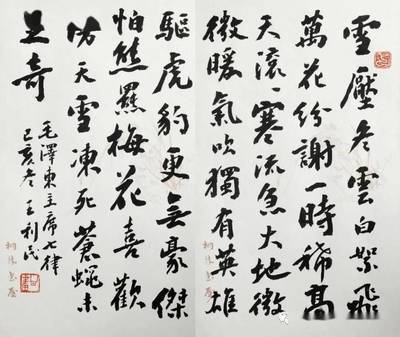 雪壓冬雲白絮飛
萬花紛謝一時稀高
天滾〻寒流急大地微
微暖氣吹獨有英雄
驅虎豹更無豪傑
怕熊羆梅花喜歡
漫天雪凍死蒼蠅未
足奇
毛澤東主席七律
己亥冬王利民